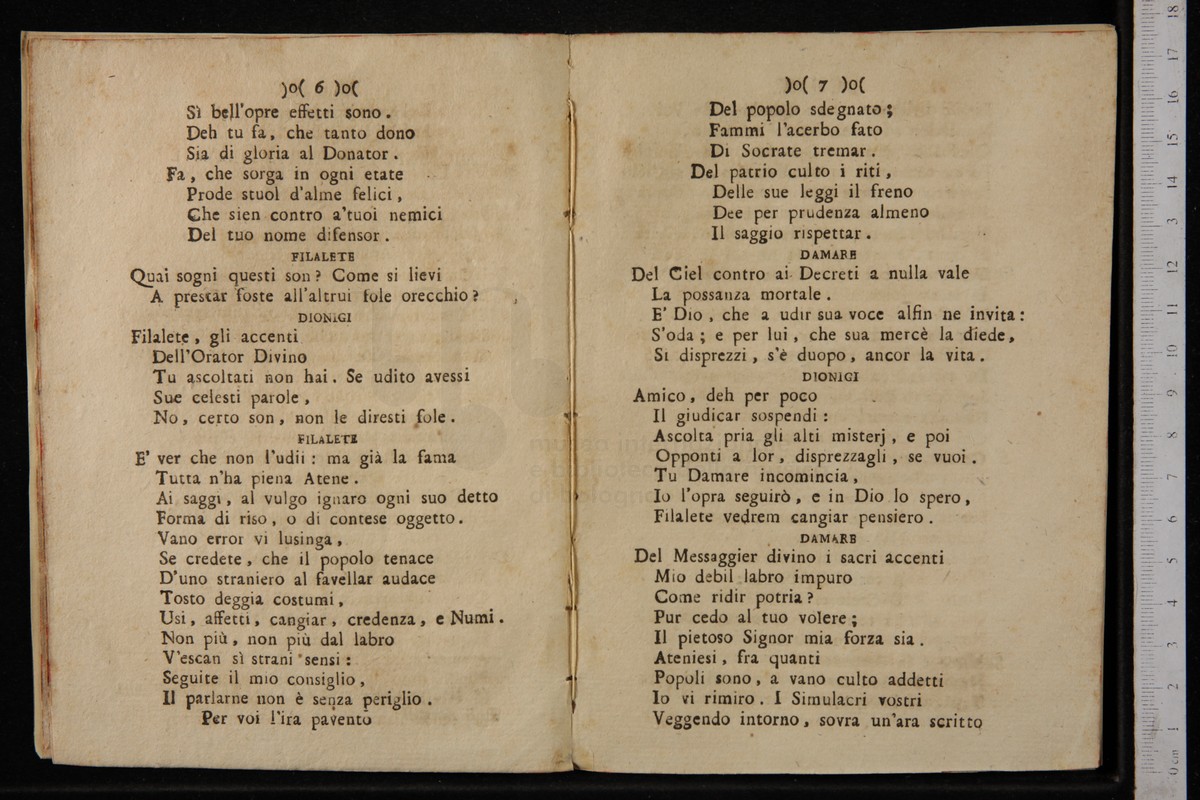 )o( 6 )o(
Sì bell'opre effetti sono.
Deh tu fa, che tanto dono
Sia di gloria al Donator.
Fa, che sorga in ogni etate
Prode stuol d'alme felici,
Che sien contro a'tuoi nemici
Del tuo nome difensor.
FILALETE
Quai sogni questi son? Come sì lievi
A prestar foste all'altrui fole orecchio?
DIONIGI
Filalete, gli accenti
Dell'Orator Divino
Tu ascoltati non hai. Se udito avessi
Sue celesti parole,
No, certo son, non le diresti fole.
FILALETE
E' ver che non l'udii: ma già la fama
Tutta n'ha piena Atene.
Ai saggi, al vulgo ignaro ogni suo detto
Forma di riso, o di contese oggetto.
Vano error vi lusinga,
Se credete, che il popolo tenace
D'uno straniero al favellar audace
Tosto deggia costumi,
Usi, affetti, cangiar, credenza, e Numi.
Non più, non più dal labro
V'escan sì strani sensi:
Seguite il mio consiglio,
Il parlarne non è senza periglio.
Per voi l'ira pavento
)o( 7 )o(
Del popolo sdegnato;
Fammi l'acerbo fato
Di Socrate tremar.
Del patrio culto i riti,
Delle sue leggi il freno
Dee per prudenza almeno
Il saggio rispettar.
DAMARE
Del Ciel contro ai Decreti a nulla vale
La possanza mortale.
E' Dio, che a udir sua voce alfin ne invita:
S'oda; e per lui, che sua mercè la diede,
Si disprezzi, s'è duopo, ancor la vita.
DIONIGI
Amico, deh per poco
Il giudicar sospendi:
Ascolta pria gli alti misterj, e poi
Opponti a lor, disprezzagli, se vuoi.
Tu Damare incomincia,
Io l'opra seguirò, e in Dio lo spero,
Filalete vedrem cangiar pensiero.
DAMARE
Del Messaggier divino i sacri accenti
Mio debil labro impuro
Come ridir potria?
Pur cedo al tuo volere;
Il pietoso Signor mia forza sia.
Ateniesi, fra quanti
Popoli sono, a vano culto addetti
Io vi rimiro. I Simulacri vostri
Veggendo intorno, sovra un'ara scritto